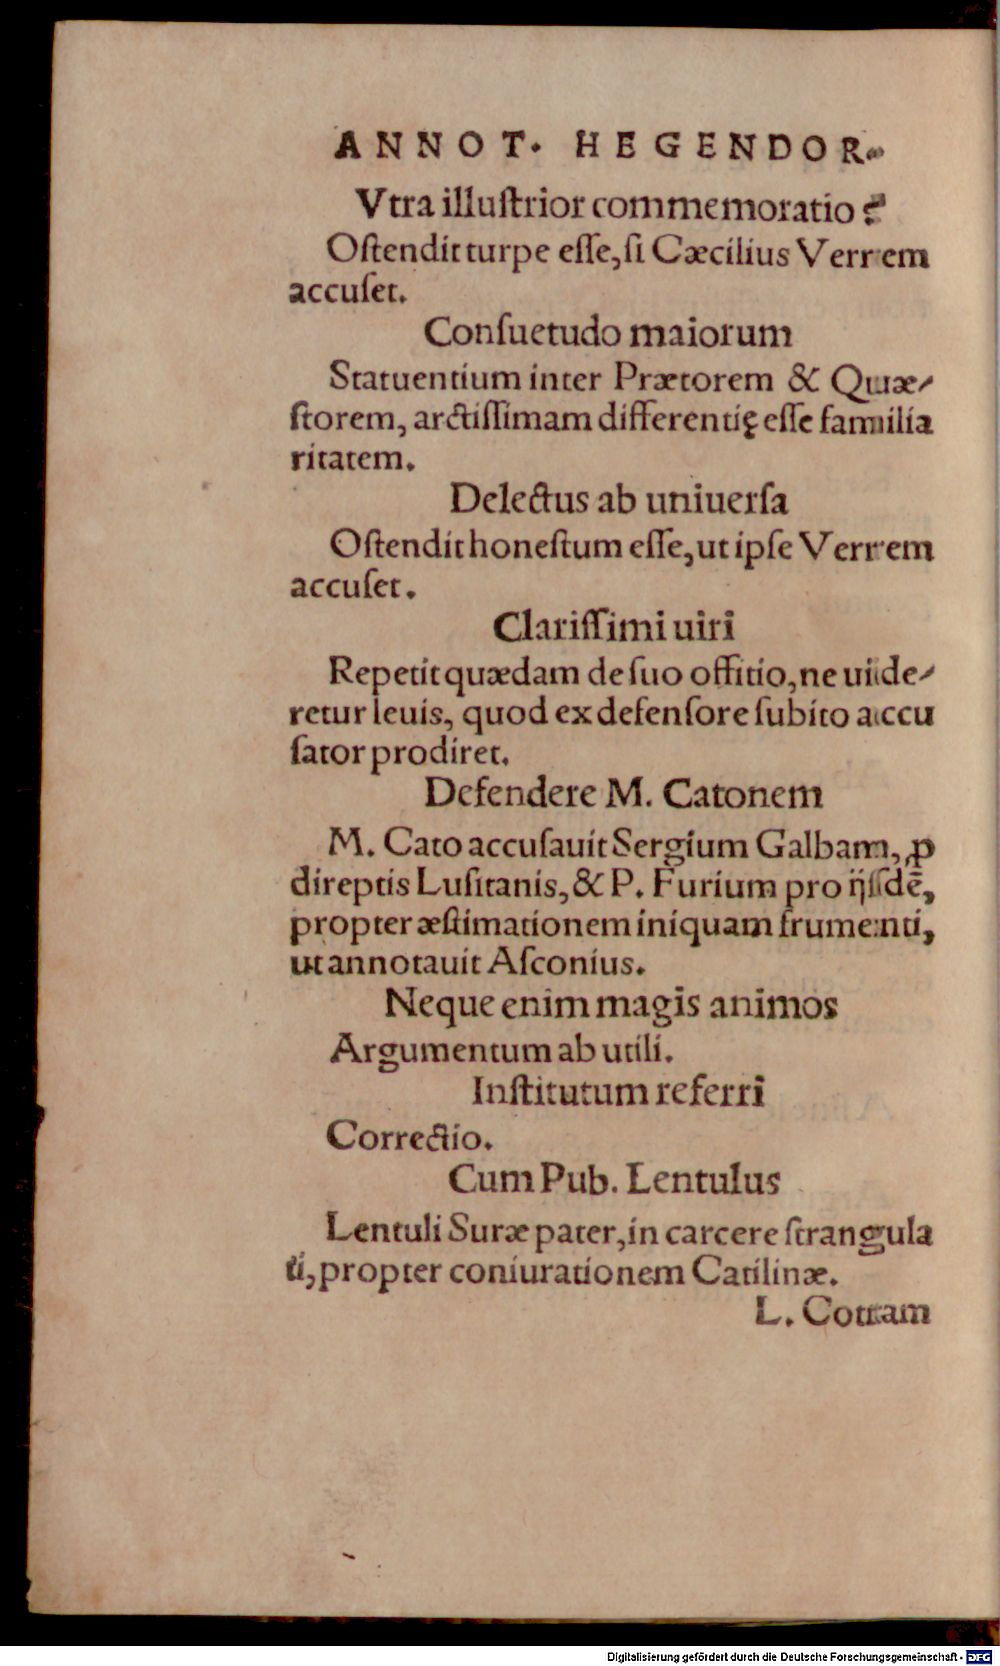 ANNOT. HEGENDOR.
Vtra illuſtrior commemoratio?
Oſtendit turpe eſſe, ſi Cæcilius Verrem
accuſet.
Conſuetudo maiorum
Statuentium inter Prætorem & Quæ-
ſtorem, arctiſſimam differentię eſſe familia
ritatem.
Delectus ab uniuerſa
Oſtendit honeſtum eſſe, ut ipſe Verrem
accuſet.
Clariſſimi uiri
Repetit quædam de ſuo offitio, ne uide-
retur leuis, quod ex defenſore ſubito accu
ſator prodiret.
Defendere M. Catonem
M. Cato accuſauit Sergium Galbam, ꝓ
direptis Luſitanis, & P. Furium pro ijſdē,
propter æſtimationem iniquam frumenti,
ut annotauit Aſconius.
Neque enim magis animos
Argumentum ab utili.
Inſtitutum referri
Correctio.
Cum Pub. Lentulus
Lentuli Suræ pater, in carcere ſtrangula
ti, propter coniurationem Catilinæ.
L. Cottam
Digitalisierung gefördert durch die Deutsche Forschungsgemeinschaft - DFG